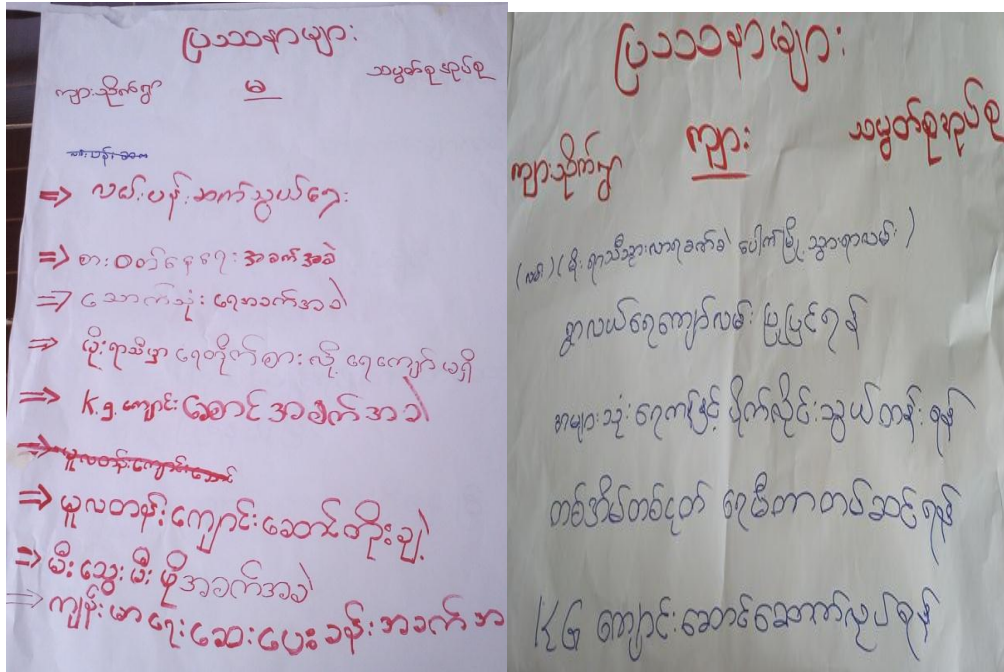 ပြဿနာများ
ကျားသိုက်ရွာ မ သပွတ်စုအုပ်စု
⇒ လမ်းပန်းဆက်သွယ်ရေး
⇒ စားဝတ်နေရေးအခက်အခဲ
⇒ သောက်သုံးရေအခက်အခဲ
⇒ မိုးရာသီမှာ ရေတိုက်စားလို့ ရေကျော်မရှိ
⇒ K.g. ကျောင်းဆောင်အခက်အခဲ
⇒ မူလတန်းကျောင်းဆောင်
⇒ မူလတန်းကျောင်းဆောင်တိုးချဲ့
⇒ မီးသွေးမီးဖိုအခက်အခဲ
⇒ ကျန်းမာရေးဆေးပေးခန်းအခက်အ
ပြဿနာများ
ကျားသိုက်ရွာ ကျား သပွတ်စုအုပ်စု
(မိုးရာသီသွားလာရခက်ခဲ ပေါက်မြို့သွားရာလမ်း)
ရွာလယ်ရေကျော်လမ်းပြုပြင်ရန်
အများသုံးရေကန်နှင့် ပိုက်လိုင်းသွယ်တန်းရန်
တစ်အိမ်တစ်လုတ် ရေမီတာတပ်ဆင်ရန်
KG ကျောင်းဆောင်ဆောက်လုပ်ရန်